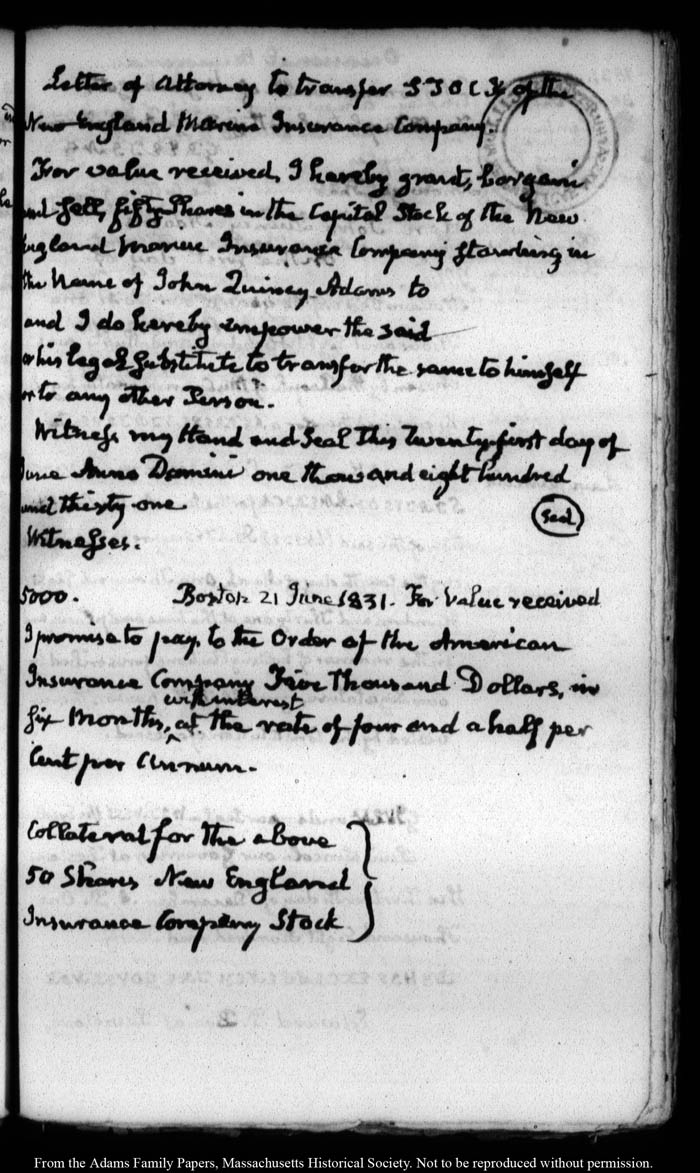 Letter of Attorney to transfer STOCK of the
New England Marine Insurance Company.
For value received, I hereby grant, bargain
and Sell, fifty Shares in the Capital Stock of the New
England Marine Insurance Company standing in
the Name of John Quincy Adams to
and I do hereby empower the said
or his legal Substitute to transfer the same to himself
or to any other Person.
Witness my Hand and Seal this Twenty first day of
June Anno Domini one thousand eight hundred
and thirty one
Seal
Witnesses.
5000. Boston 21 June 1831. For Value received
I promise to pay to the Order of the American
Insurance Company Five Thousand Dollars, in
with interest
Six Months, at the rate of four and a half per
Cent per Annum.
Collateral for the above
50 Shares New England
Insurance Company Stock
From the Adams Family Papers, Massachusetts Historical Society. Not to be reproduced without permission.